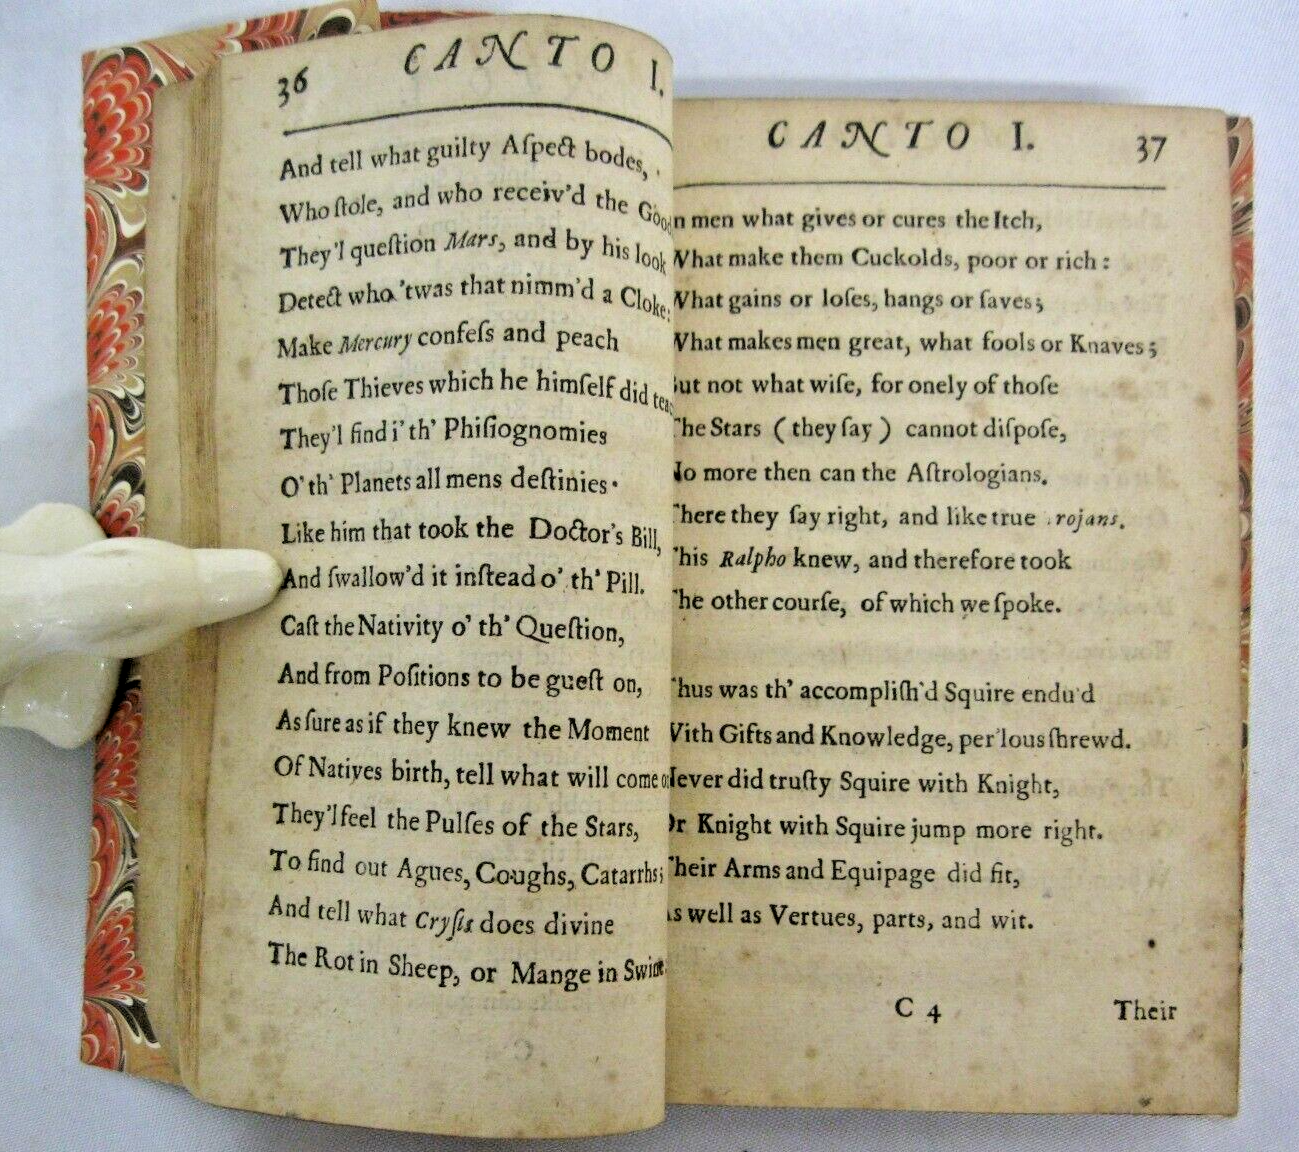 36 CANTO I.
And tell what guilty Aſpect bodes,
Who ſtole, and who receiv'd the Good
They'l queſtion Mars, and by his look
Detect who 'twas that nimm'd a Cloke:
Make Mercury confeſs and peach
Thoſe Thieves which he himſelf did
They'l find i' th' Phiſiognomies
O' th' Planets all mens deſtinies.
Like him that took the Doctor's Bill,
And ſwallow'd it inſtead o' th' Pill.
Caſt the Nativity o' th' Queſtion,
And from Poſitions to be gueſt on,
As ſure as if they knew the Moment
Of Natives birth, tell what will come
They'l feel the Pulſes of the Stars,
To find out Agues, Coughs, Catarrhs;
And tell what Cryſis does divine
The Rot in Sheep, or Mange in Swine
CANTO I. 37
n men what gives or cures the Itch,
What make them Cuckolds, poor or rich:
What gains or loſes, hangs or ſaves;
What makes men great, what fools or Knaves;
ut not what wiſe, for onely of thoſe
he Stars ( they ſay ) cannot diſpoſe,
o more then can the Aſtrologians.
here they ſay right, and like true rojans.
his Ralpho knew, and therefore took
he other courſe, of which we ſpoke.
hus was th' accompliſh'd Squire endu'd
With Gifts and Knowledge, per'lous ſhrewd.
ever did truſty Squire with Knight,
Or Knight with Squire jump more right.
heir Arms and Equipage did fit,
s well as Vertues, parts, and wit.
C 4 Their